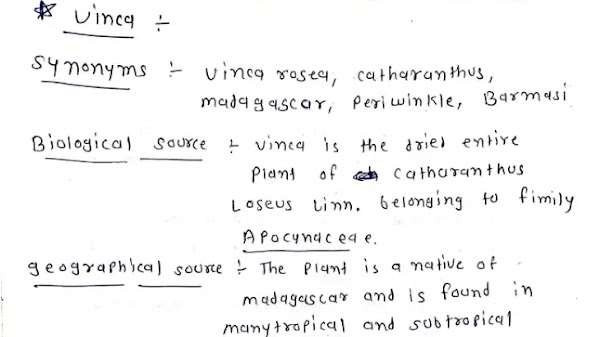 * Vinca :-
Synonyms :- Vinca rosea, catharanthus,
madagascar, Periwinkle, Barmasi
Biological source :- Vinca is the dried entire
Plant of catharanthus
Loseus Linn. belonging to fimily
Apocynaceae.
geographical source :- The Plant is a native of
madagascar and is found in
many tropical and subtropical